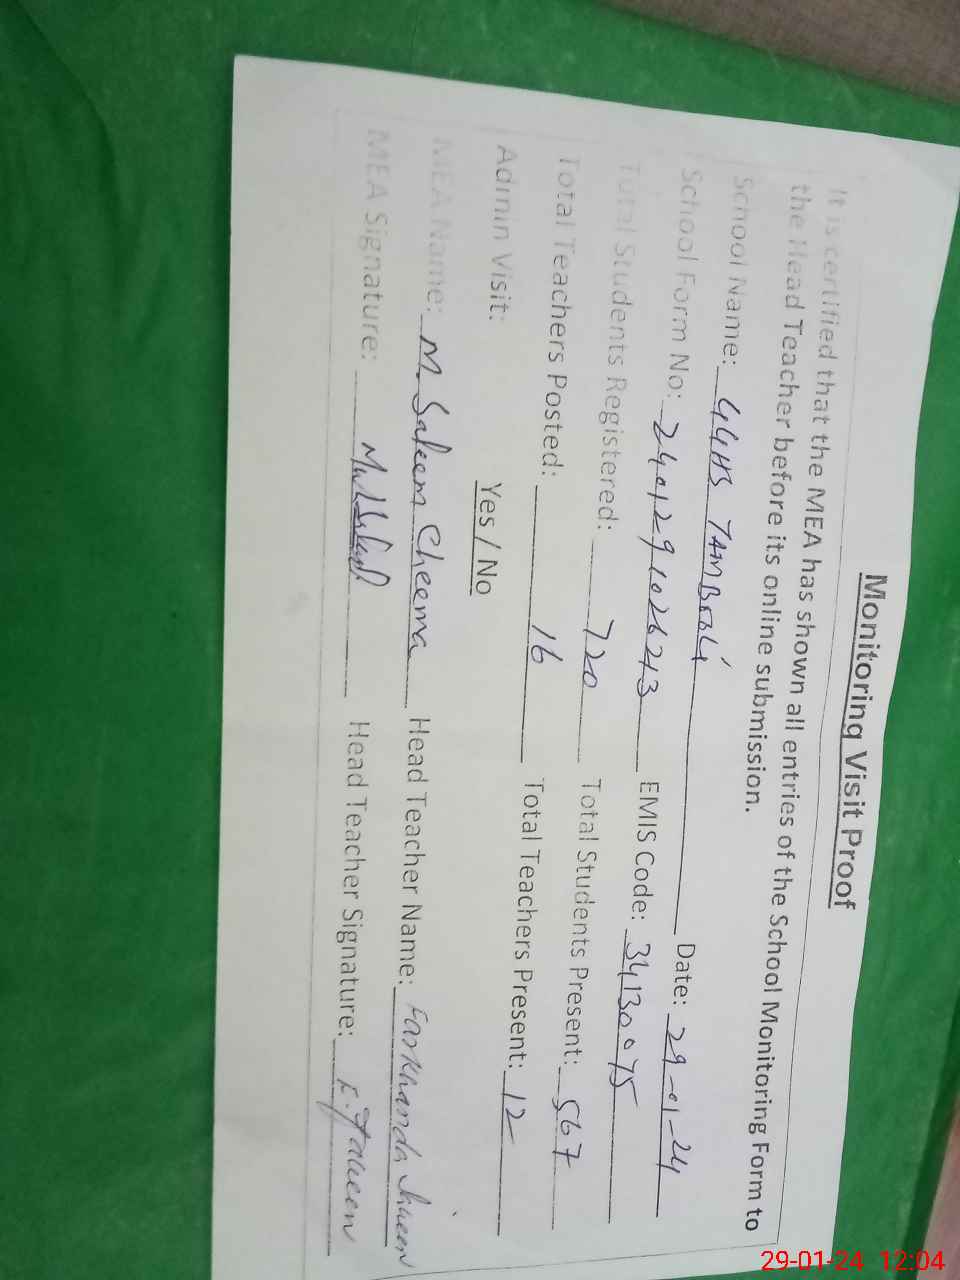 Monitoring Visit Proof
It is certified that the MEA has shown all entries of the School Monitoring Form to
the Head Teacher before its online submission.
School Name: GGHS TAMBOLI Date: 29-01-24
School Form No: 240129 1026213 EMIS Code: 34130075
Total Students Registered: 720 Total Students Present: 567
Total Teachers Posted: 16 Total Teachers Present: 12
Admin Visit: Yes / No
MEA Name: M. Saleem Cheema Head Teacher Name: Farkhanda
MEA Signature: Head Teacher Signature:
29-01-24 12:04